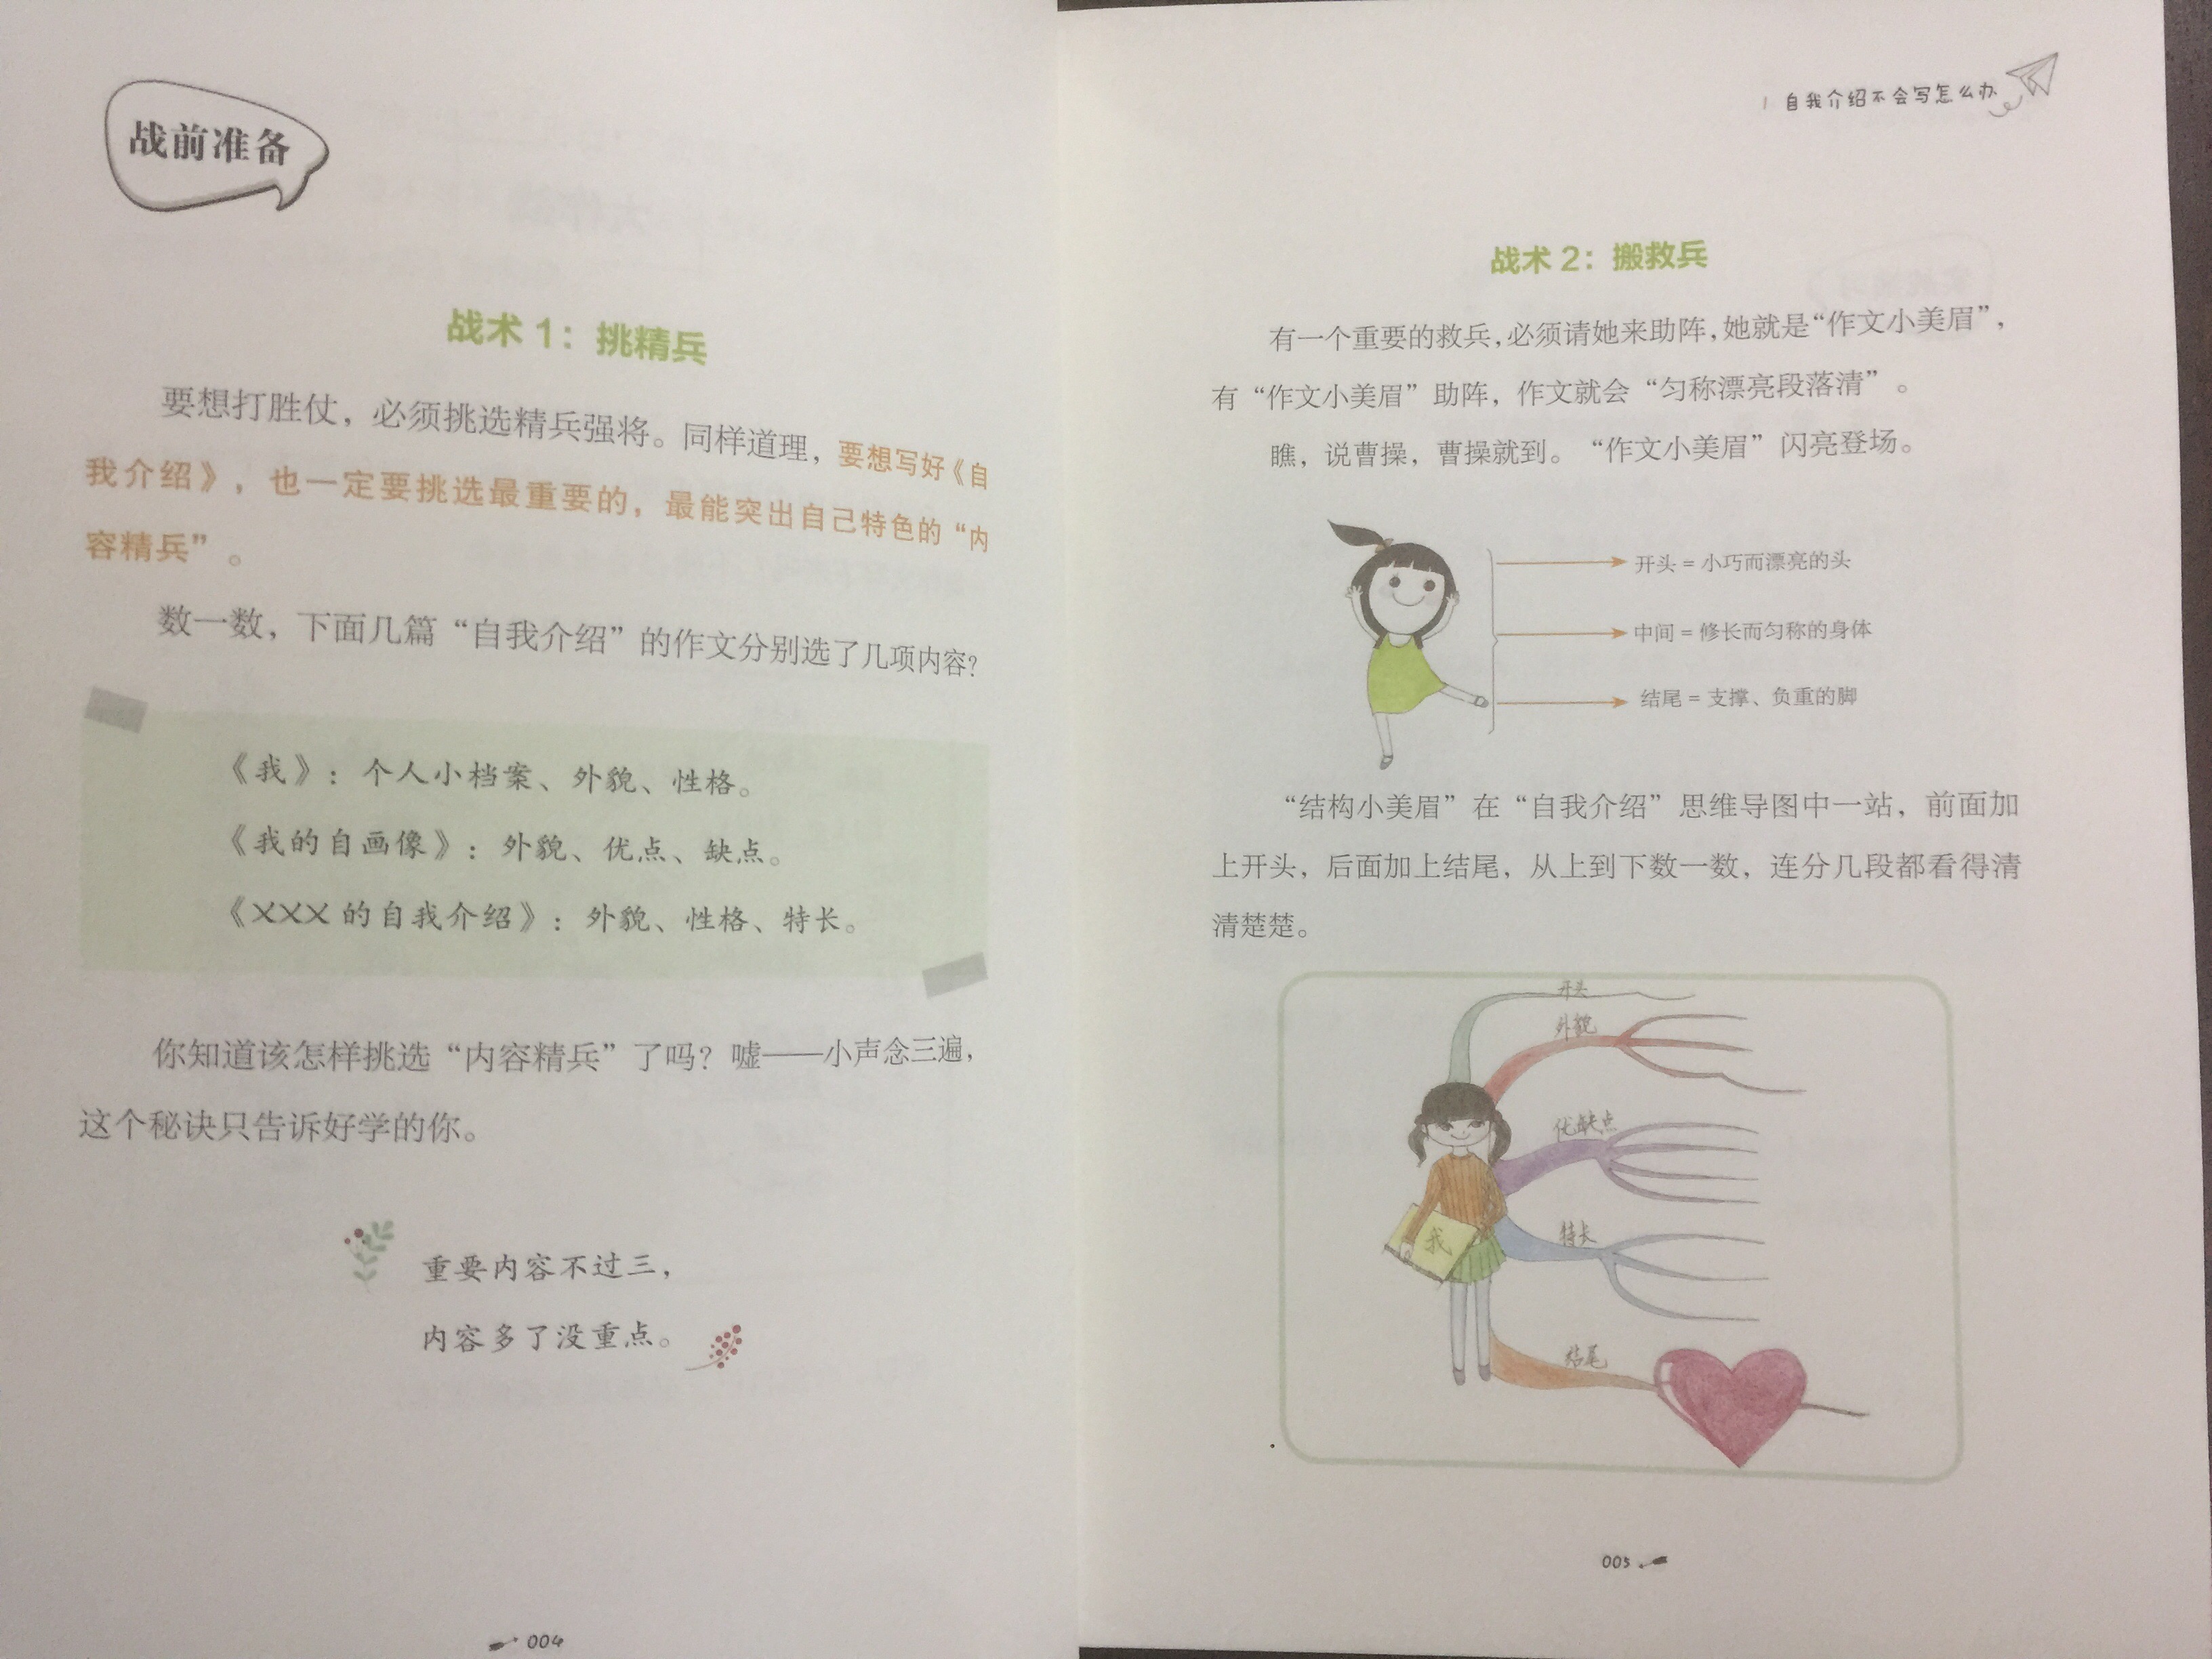 战前准备
战术 1：挑精兵
要想打胜仗，必须挑选精兵强将。同样道理，要想写好《自
我介绍》，也一定要挑选最重要的，最能突出自己特色的“内
容精兵”。
数一数，下面几篇“自我介绍”的作文分别选了几项内容？
《我》：个人小档案、外貌、性格。
《我的自画像》：外貌、优点、缺点。
《XXX 的自我介绍》：外貌、性格、特长。
你知道该怎样挑选“内容精兵”了吗？嘘——小声念三遍，
这个秘诀只告诉好学的你。
重要内容不过三，
内容多了没重点。
004
1 自我介绍不会写怎么办
战术 2：搬救兵
有一个重要的救兵，必须请她来助阵，她就是“作文小美眉”，
有“作文小美眉”助阵，作文就会“匀称漂亮段落清”。
瞧，说曹操，曹操就到。“作文小美眉”闪亮登场。
开头 = 小巧而漂亮的头
中间 = 修长而匀称的身体
结尾 = 支撑、负重的脚
“结构小美眉”在“自我介绍”思维导图中一站，前面加
上开头，后面加上结尾，从上到下数一数，连分几段都看得清
清楚楚。
开头
外貌
优缺点
特长
我
结尾
005